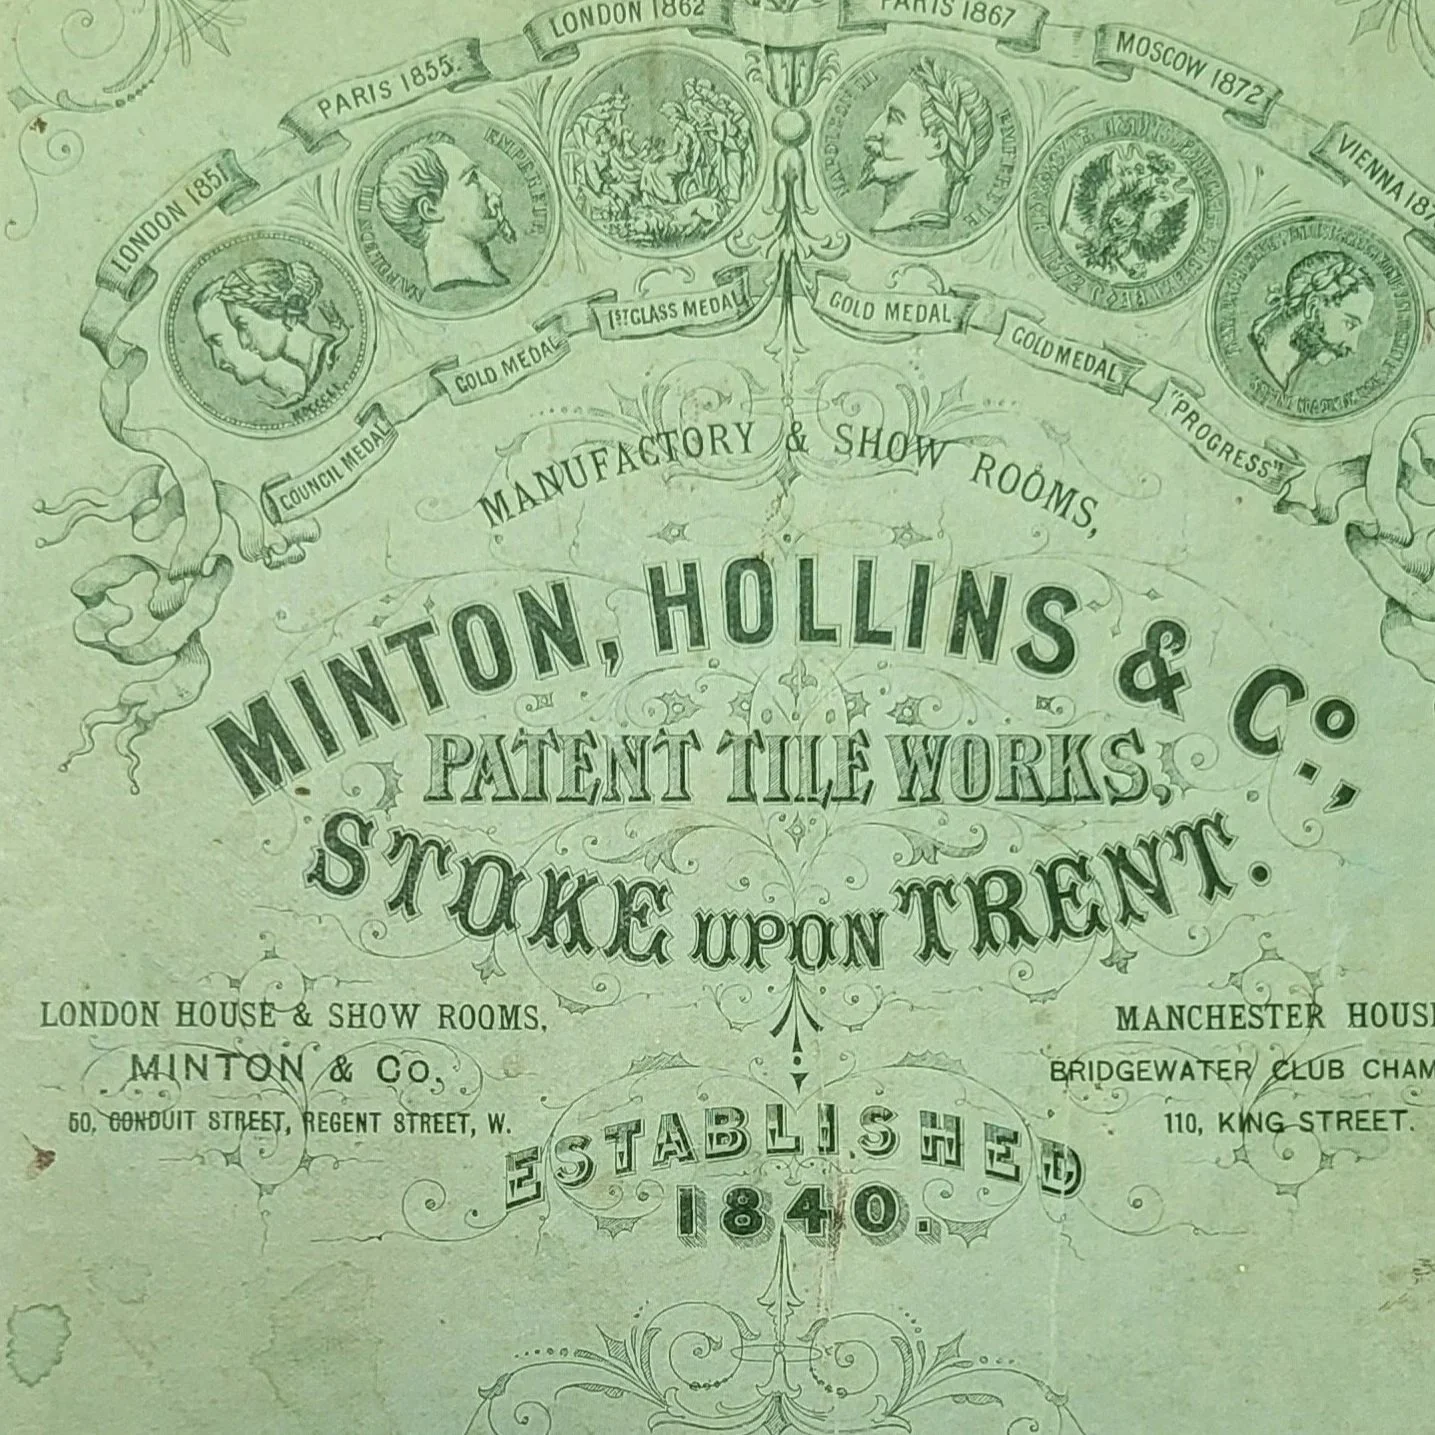 LONDON 1851
PARIS 1855.
LONDON 1862
PARIS 1867
MOSCOW 1872
VIENNA 187
NAPOLEON III EMPEREUR
NAPOLEON III EMPEREUR
COUNCIL MEDAL
GOLD MEDAL
1ST CLASS MEDAL
GOLD MEDAL
GOLD MEDAL
"PROGRESS"
MANUFACTORY & SHOW ROOMS,
MINTON, HOLLINS & Co.,
PATENT TILE WORKS,
STOKE UPON TRENT.
LONDON HOUSE & SHOW ROOMS,
MINTON & Co,
50, CONDUIT STREET, REGENT STREET, W.
MANCHESTER HOUS
BRIDGEWATER CLUB CHAM
110, KING STREET.
ESTABLISHED
1840.